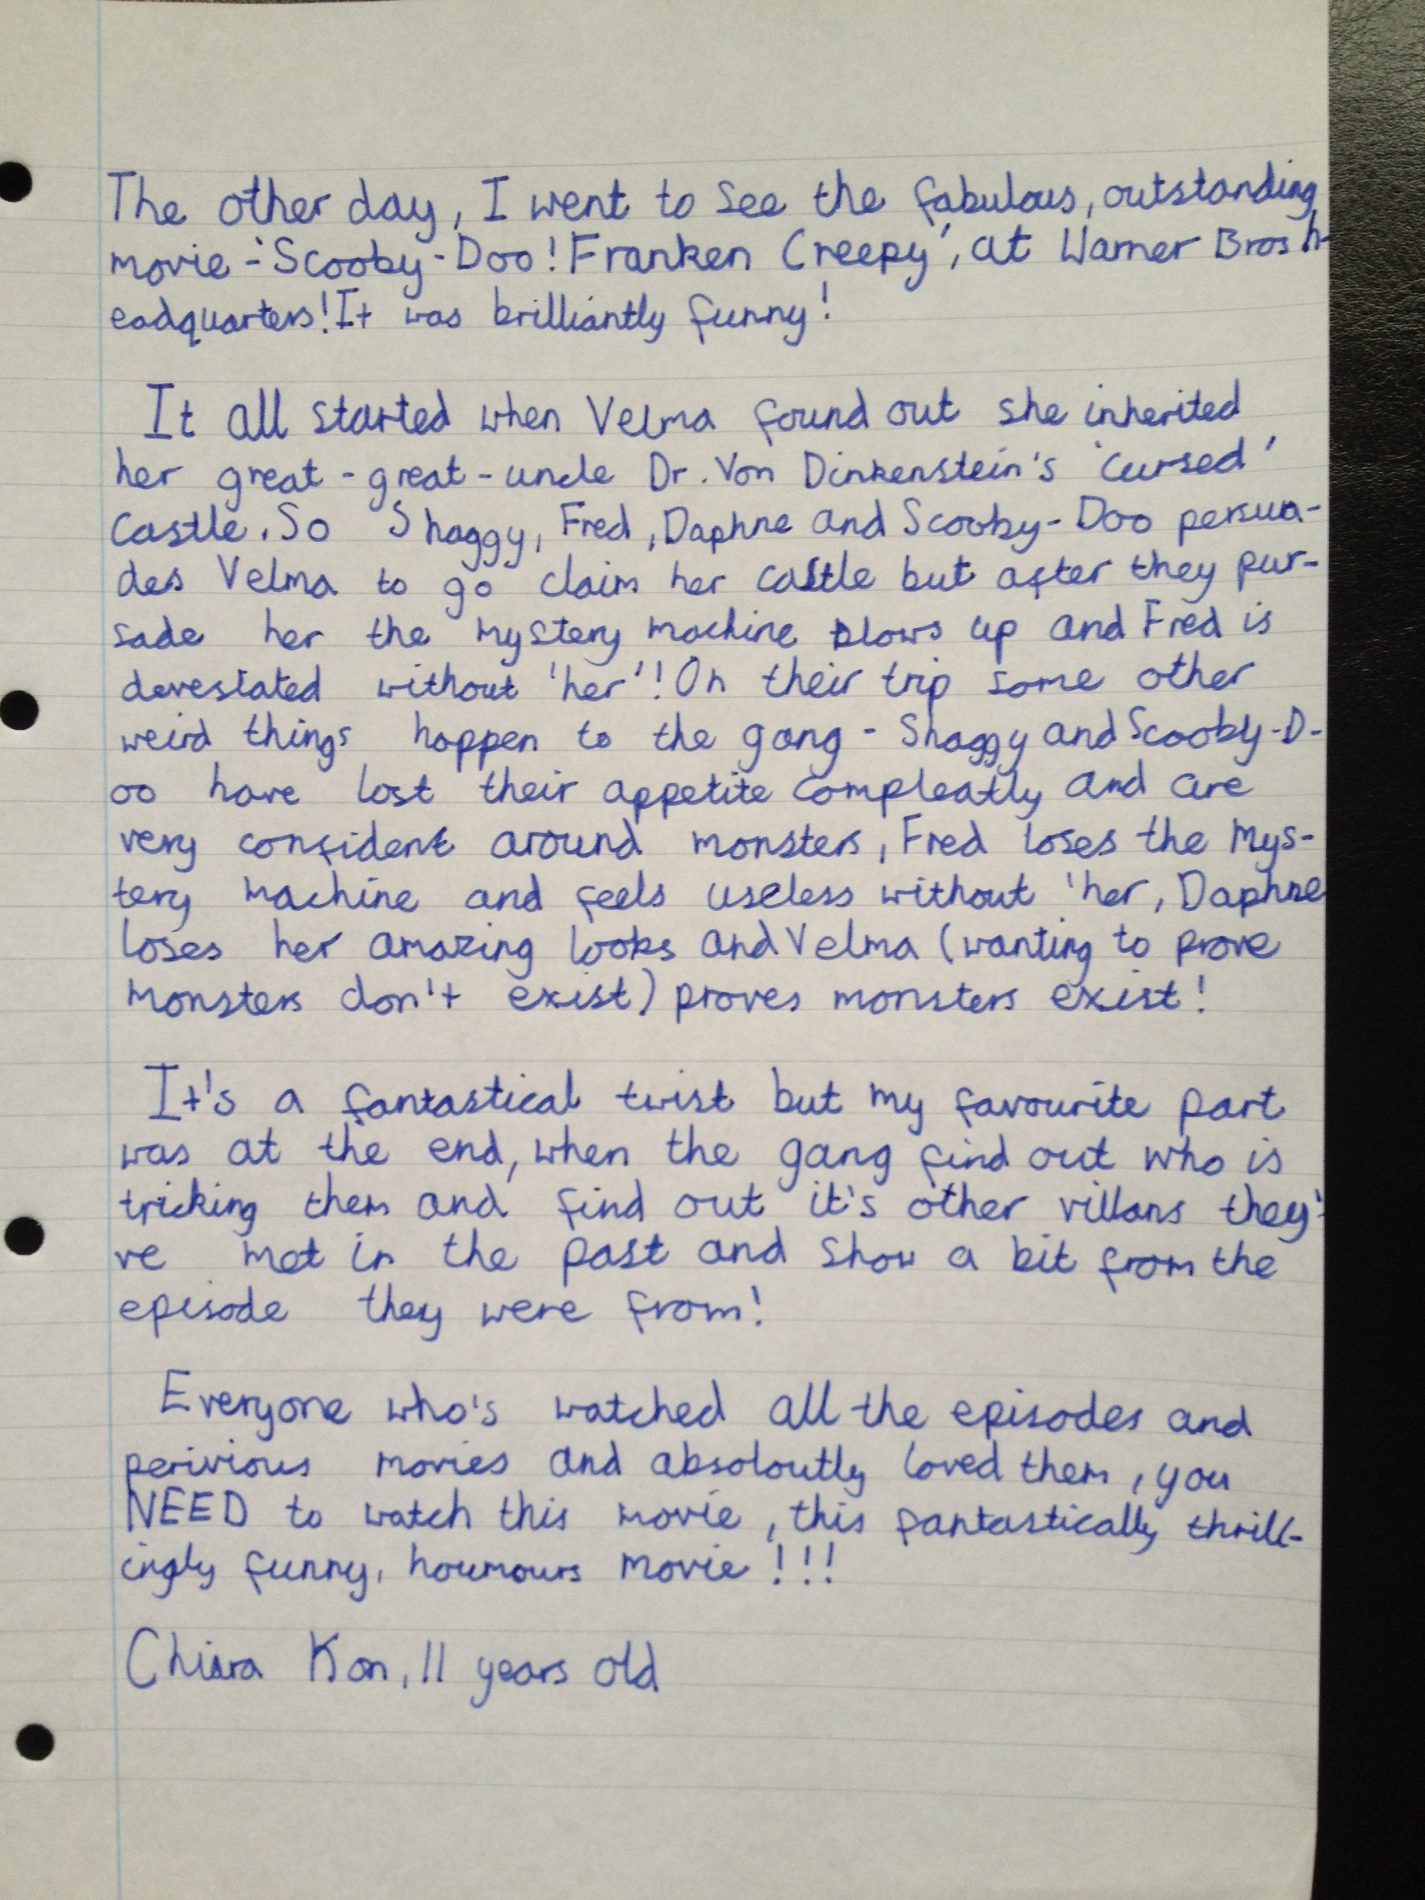 The other day, I went to see the fabulous, outstanding
movie - 'Scooby-Doo! Franken Creepy', at Warner Bros h-
eadquarters! It was brilliantly funny!
It all started when Velma found out she inherited
her great-great-uncle Dr. Von Dinkenstein's 'cursed'
castle. So Shaggy, Fred, Daphne and Scooby-Doo persua-
des Velma to go claim her castle but after they pur-
sade her the mystery machine blows up and Fred is
devestated without 'her'! On their trip some other
weird things happen to the gang - Shaggy and Scooby-D-
oo have lost their appetite compleatly and are
very confident around monsters, Fred loses the Mys-
tery machine and feels useless without 'her, Daphne
loses her amazing looks and Velma (wanting to prove
monsters don't exist) proves monsters exist!
It's a fantastical twist but my favourite part
was at the end, when the gang find out who is
tricking them and find out it's other villans they'-
ve met in the past and show a bit from the
episode they were from!
Everyone who's watched all the episodes and
perivious movies and absoloutly loved them, you
NEED to watch this movie, this fantastically thrill-
ingly funny, houmours movie!!!
Chiara Kon, 11 years old